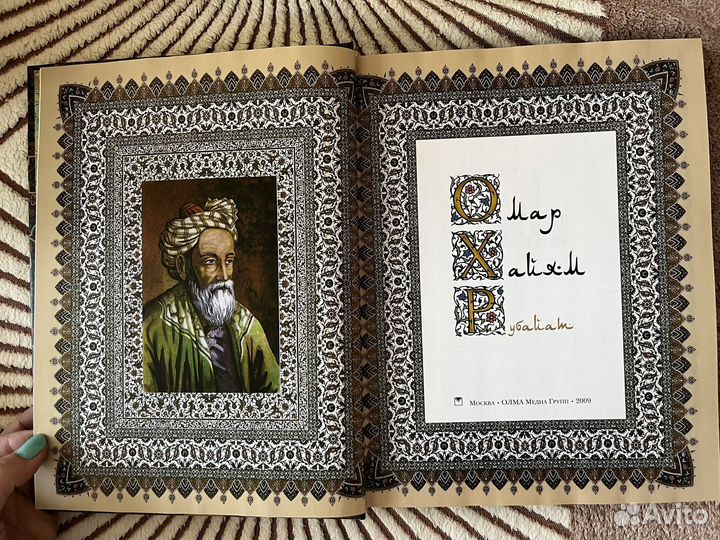 Омар
Хайям
Рубайат
Москва • ОЛМА Медиа Групп • 2009
Avito